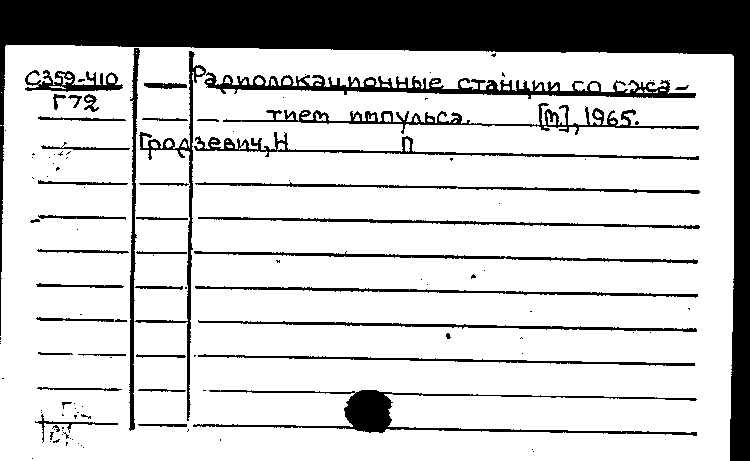 С359-410 — Радиолокационные станции со сжа-
Г72 тием импульса. [М], 1965.
Гродзевич, Н П